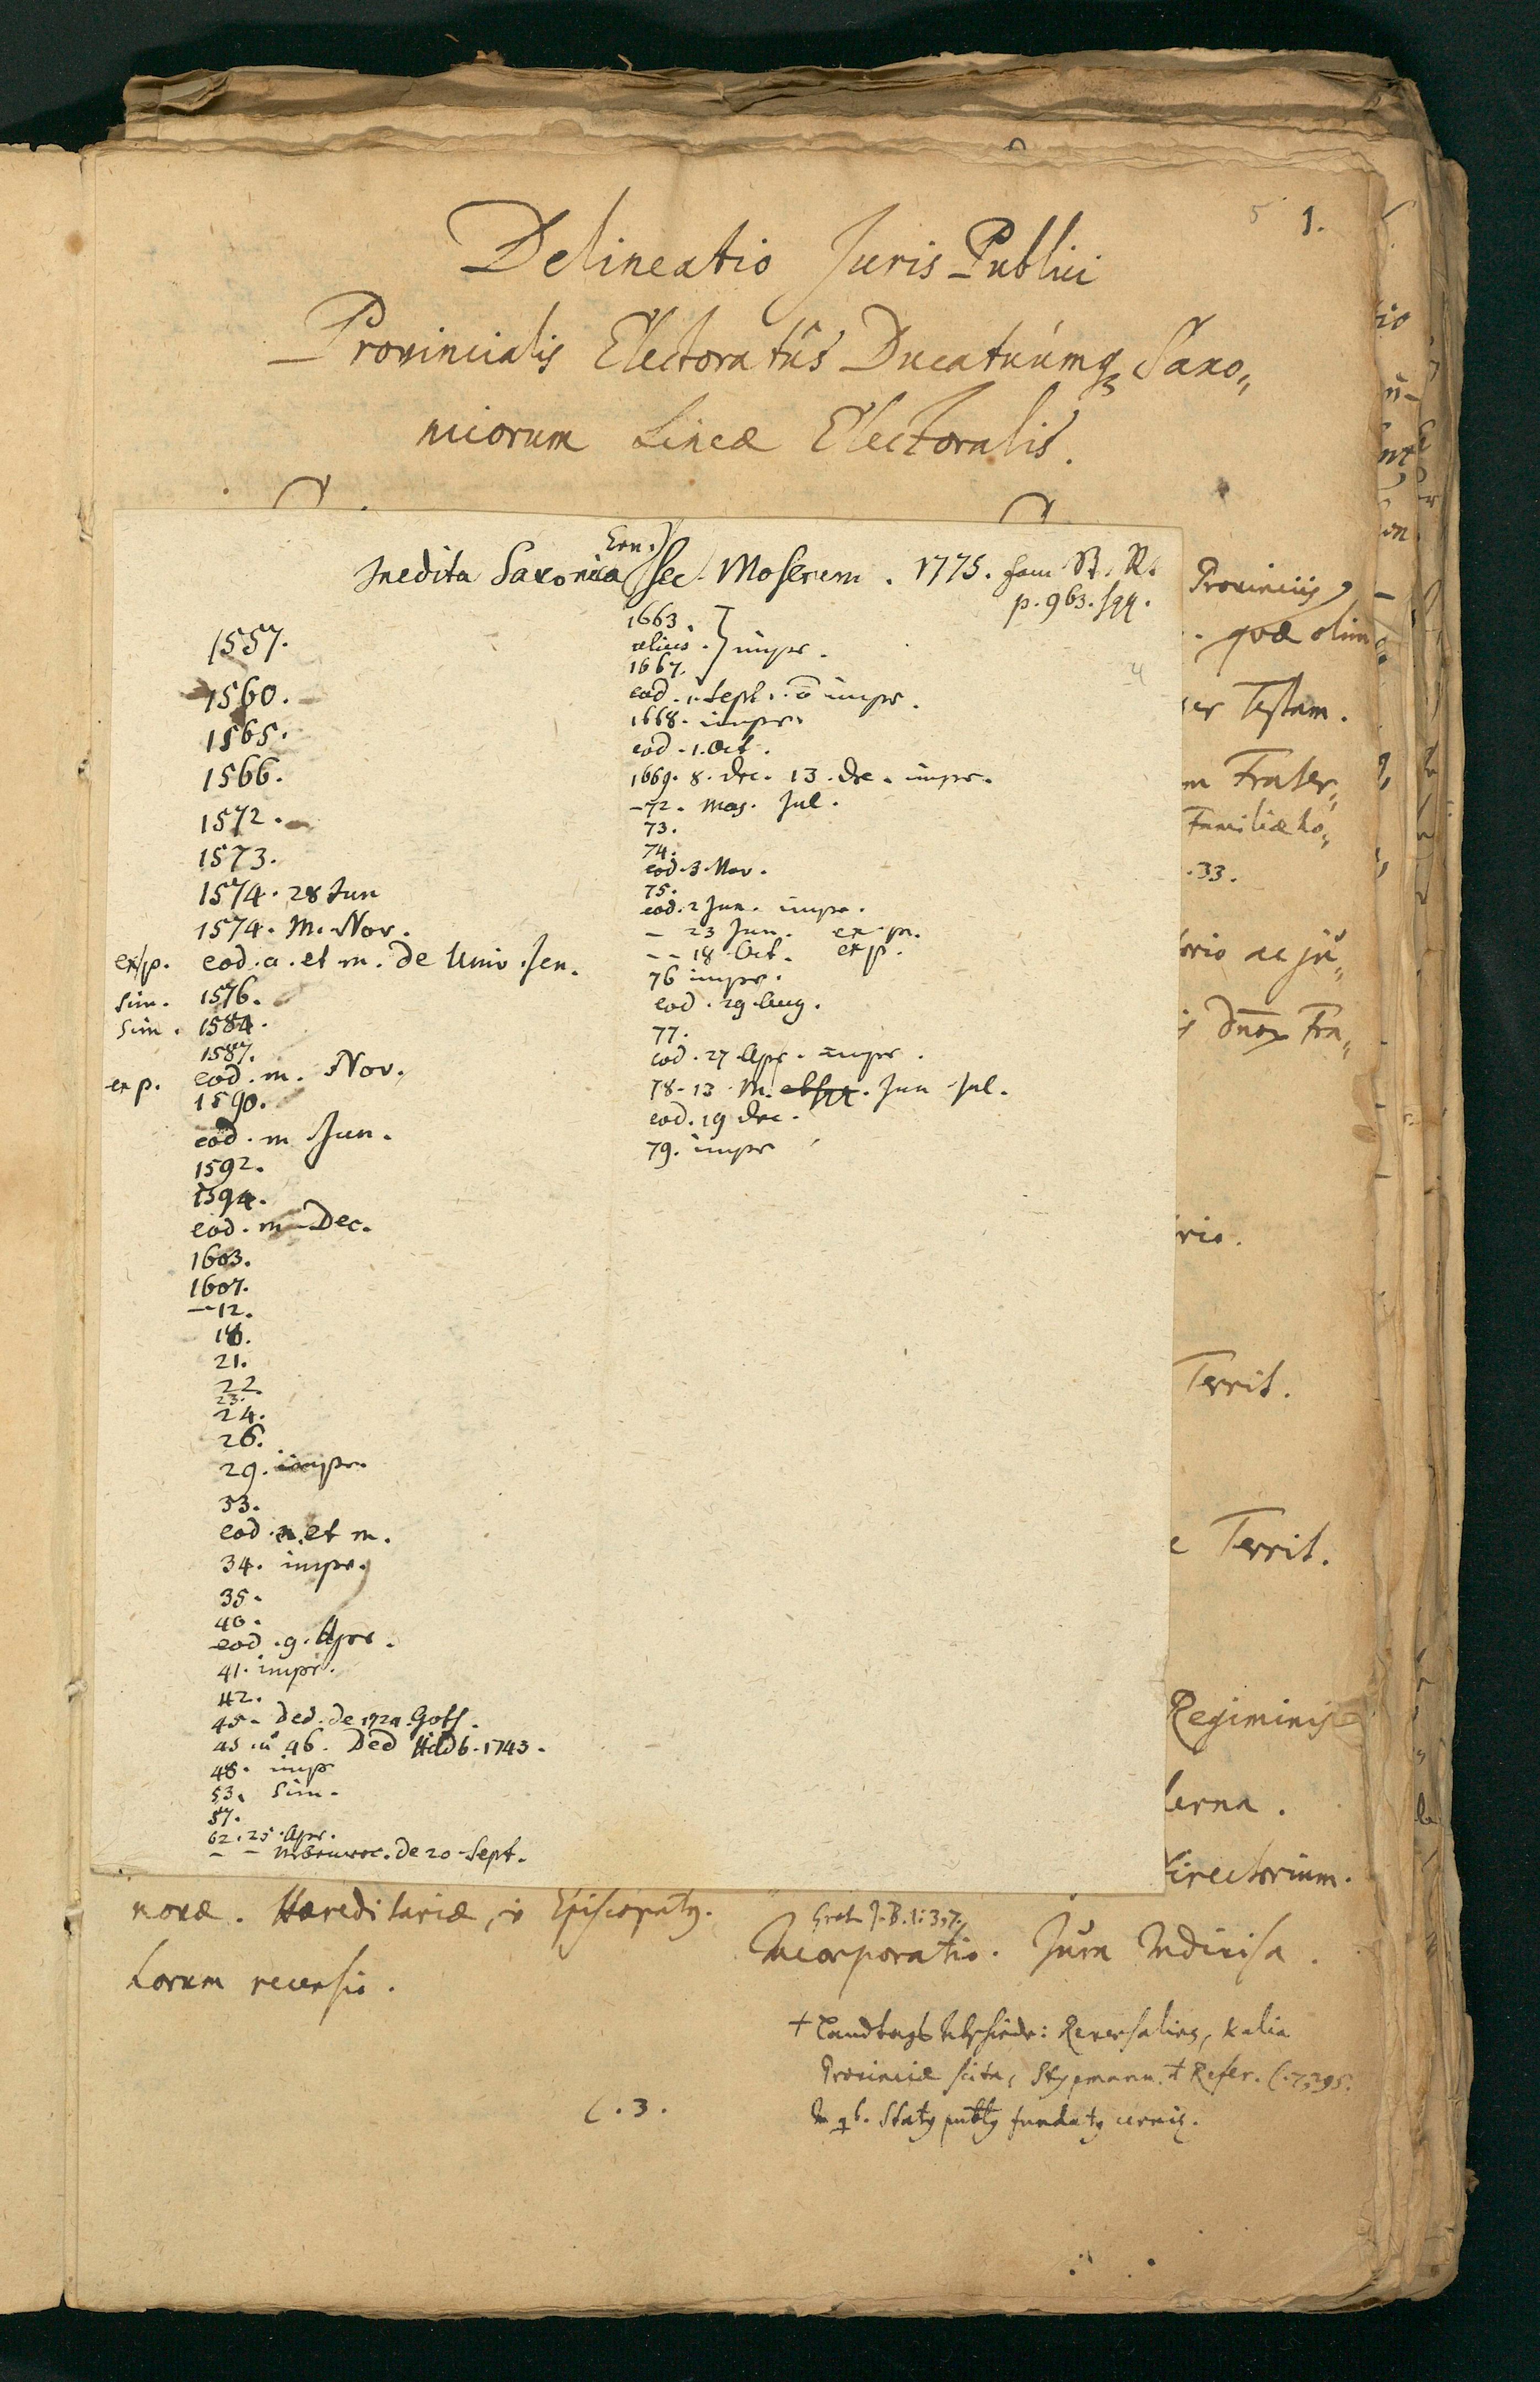 1.
Delineatio Juris Publici
Provincialis Electoratûs Ducatuúmq Saxo„
nicorum Lineæ Electoralis.
Inedita Saxonica (Ern.) sec. Moserum. 1775. fam St. R.
p. 963. sqq.
1557.
1560.
1565.
1566.
1572.
1573.
1574. 28 Jun
1574. M. Nov.
exp. eod. a. et m. de Univ. Jen.
Sim. 1576.
Sim. 1584.
1587.
exp. eod. m. Nov.
1590.
eod. m Jun.
1592.
1594.
eod. m Dec.
1603.
1607.
—12.
18.
21.
22.
23.
24.
26.
29. impr.
33.
eod. a. et m.
34. impr.
35.
40.
eod. 9. Apr.
41. impr.
42.
45. Ded. de 1724. Goth.
45. u 46. Ded Hildb. 1743.
48. impr
53. Sim.
57.
62. 25. Apr.
— — de 20 Sept.
1663.
alius. } impr.
1667.
eod. 1. Sept. ō impr.
1668. impr.
eod. 1. Oct.
1669. 8. Dec. 13. Dec. impr.
—72. Maj. Jul.
73.
74.
eod. 3. Nov.
75.
eod. 2 Jun. impr.
— 23 Jun. exp.
— — 18. Oct. exp.
76 impr.
eod. 29. Aug.
77.
eod. 27 Apr. impr.
78. 13 M. Jun Jul.
eod. 19 Dec.
79. impr
Provinciis,
quæ olim
Testam.
Frater„
Familiæ ho„
33.
ac jū„
Fra„
Territ.
Territ.
Regiminis
novæ. Hæreditariæ, Episcopatq.
torum recensio.
1: 3,7.
Incorporatio. Jura Indivisa.
+ Landtags Abschiede: Reversalies, & alia
Provinciæ scita, Stypmann. + Refer.
Statq publq fundatq
C. 3.